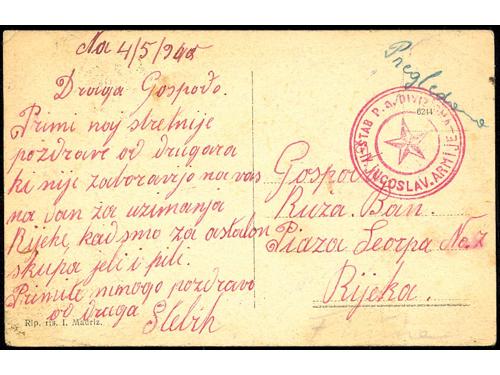 Na 4/5/945
Draga Gospođo.
Primi naj sretnije
pozdrave od drugara
ki nije zaboravjo na vas
na dan za uzimanja
Rijeke, kad smo za astalon
skupa jeli i pili.
Primite mnogo pozdrava
od druga
Rip. ris. I. Madriz.
Pregledano
ŠTAB P.A. DIVIZ
JUGOSLAV. ARMIJE
6244
Gospođa
Ruža Ban.
Piaza No. 7
Rijeka.